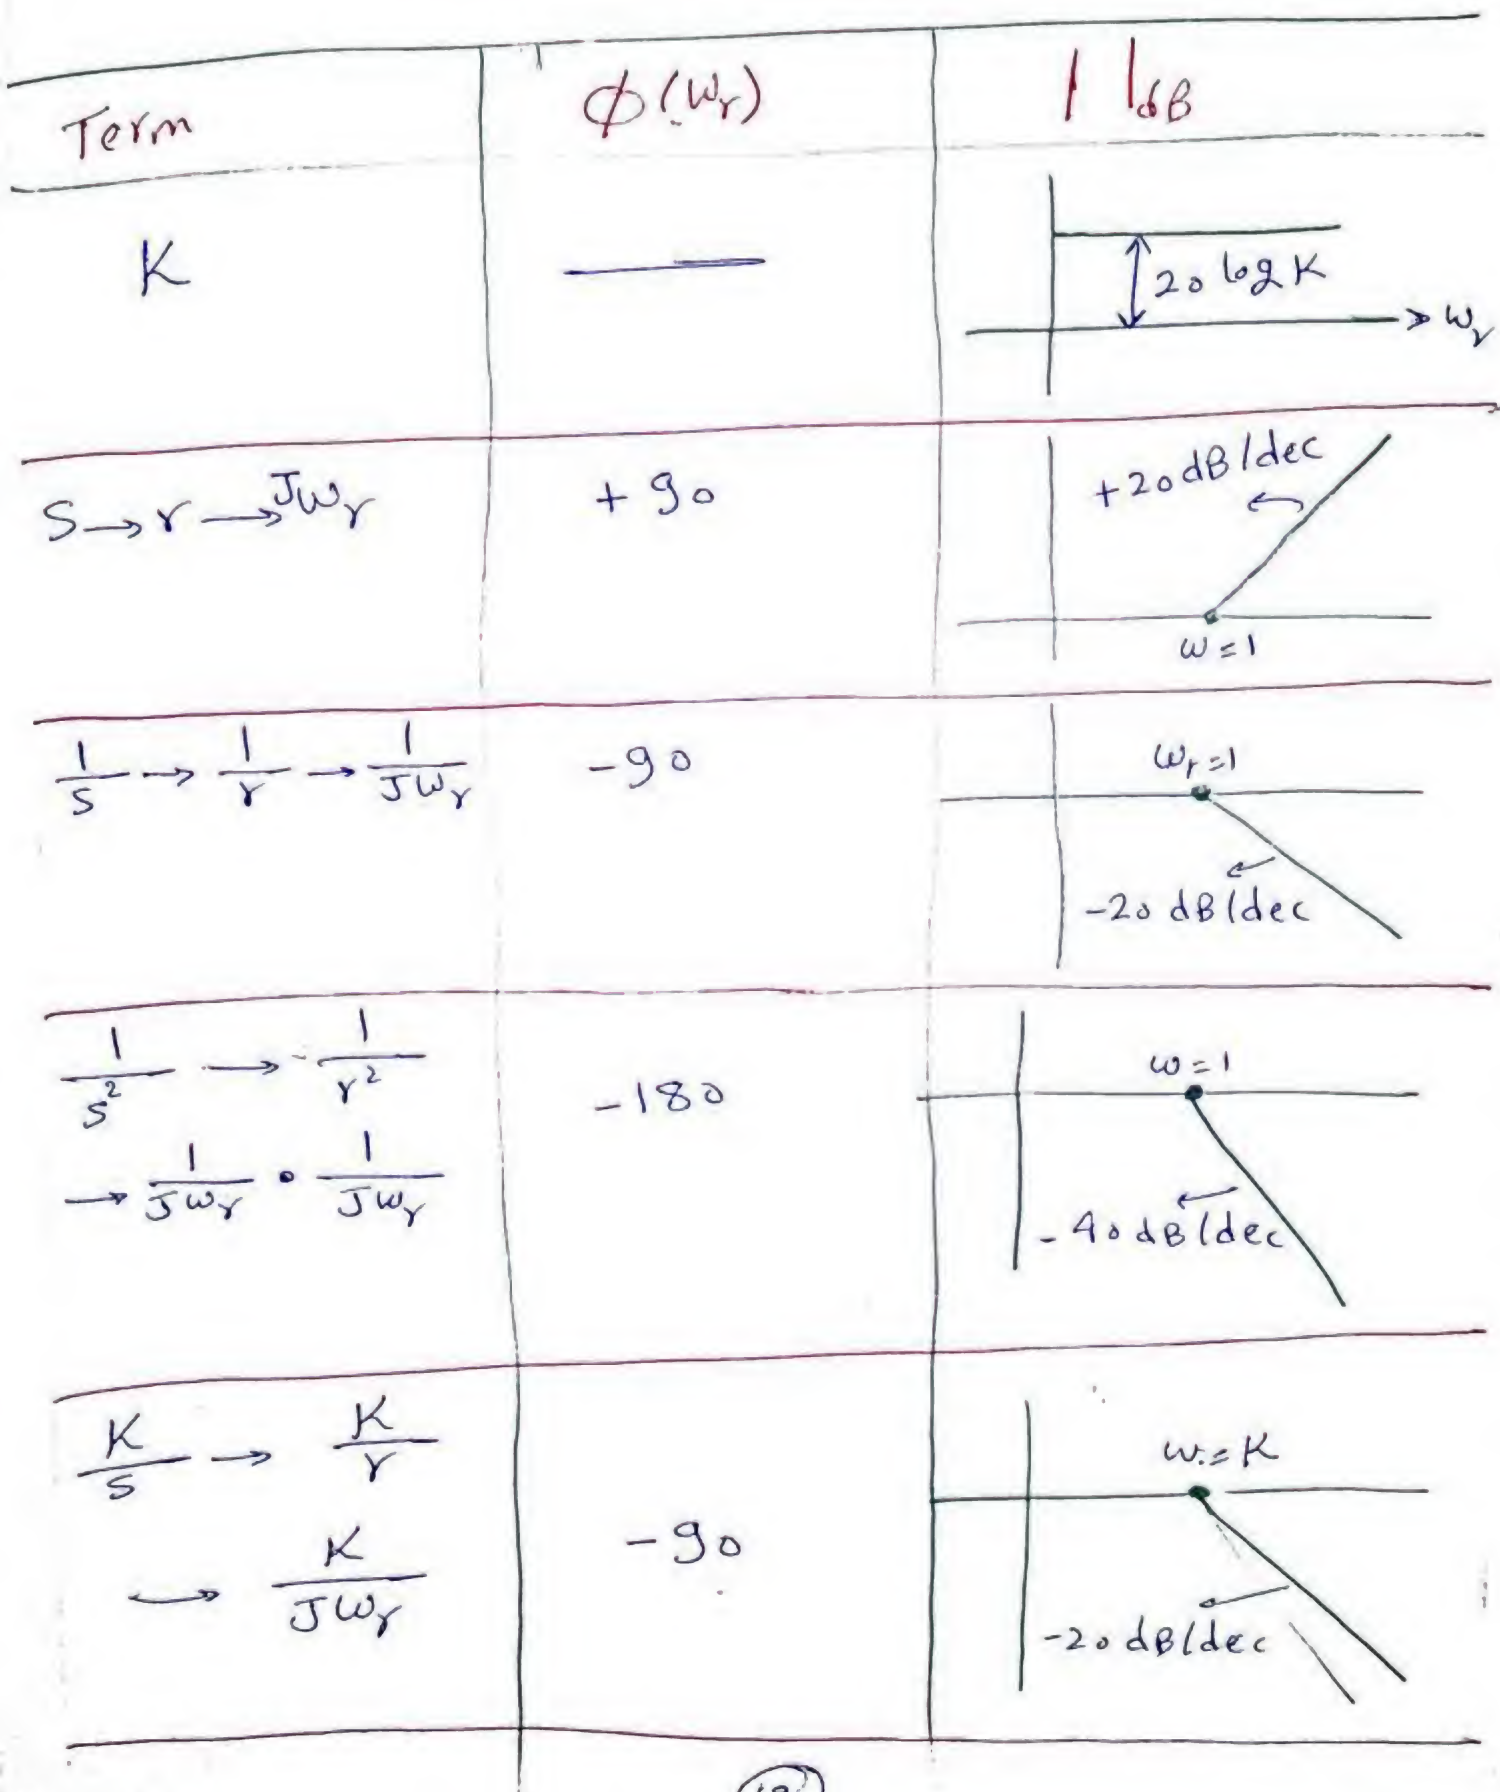 Term ϕ(ωr) | |dB
K —— 20 log K
ωr
S → r → Jωr +90 +20 dB/dec
ω=1
1/S → 1/r → 1/Jωr -90 ωr=1
-20 dB/dec
1/S² → 1/r² -180 ω=1
→ 1/Jωr • 1/Jωr -40 dB/dec
K/S → K/r ω=K
→ K/Jωr -90
-20 dB/dec